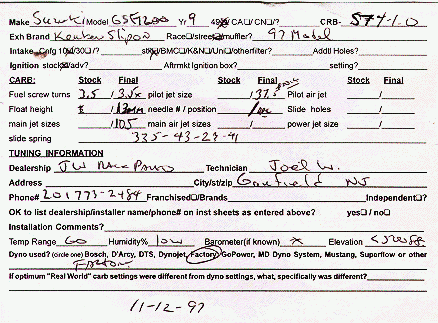 Make Suzuki Model GSF1200 Yr 9 49☒/ CA☐/ CN☐/? CRB- 574-1.0
Exh Brand Slipon Race☐/street☐/muffler? 97 Model
Intake: 10☐/30☐/? stk/BMC☐/K&N☐/Uni☐/otherfilter? Addtl Holes?
Ignition stock☒/adv? Aftrmkt Ignition box? setting?
CARB: Stock Final Stock Final Stock Final
Fuel screw turns 3.5 / pilot jet size / 37.5 Pilot air jet /
Float height / 13mm needle # / position / Slide holes /
main jet sizes / 105 main air jet sizes / power jet size /
slide spring 335-43-29-41
TUNING INFORMATION
Dealership JW Race Technician Joel W.
Address City/st/zip Garfield NJ
Phone# 201 773-2484 Franchised☐/Brands Independent☐?
OK to list dealership/installer name/phone# on inst sheets as entered above? yes☐ / no☐
Installation Comments?
Temp Range 60 Humidity% low Barometer(if known) x Elevation
Dyno used? (circle one) Bosch, D'Arcy, DTS, Dynojet, Factory GoPower, MD Dyno System, Mustang, Superflow or other
Factory
If optimum "Real World" carb settings were different from dyno settings, what, specifically was different?
11-12-97